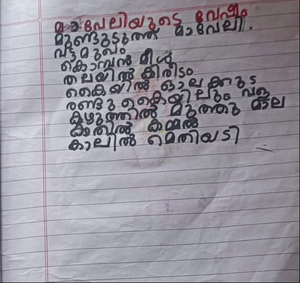 മാവേലിയുടെ വേഷം
മുണ്ടുടുത്ത മാവേലി.
വട്ടമുഖം
കൊമ്പൻ മീശ
തലയിൽ കിരീടം
കൈയിൽ ഓലക്കുട
രണ്ടു കൈയിലും വള
കഴുത്തിൽ മുത്തു മാല
കാതിൽ കമ്മൽ
കാലിൽ മെതിയടി